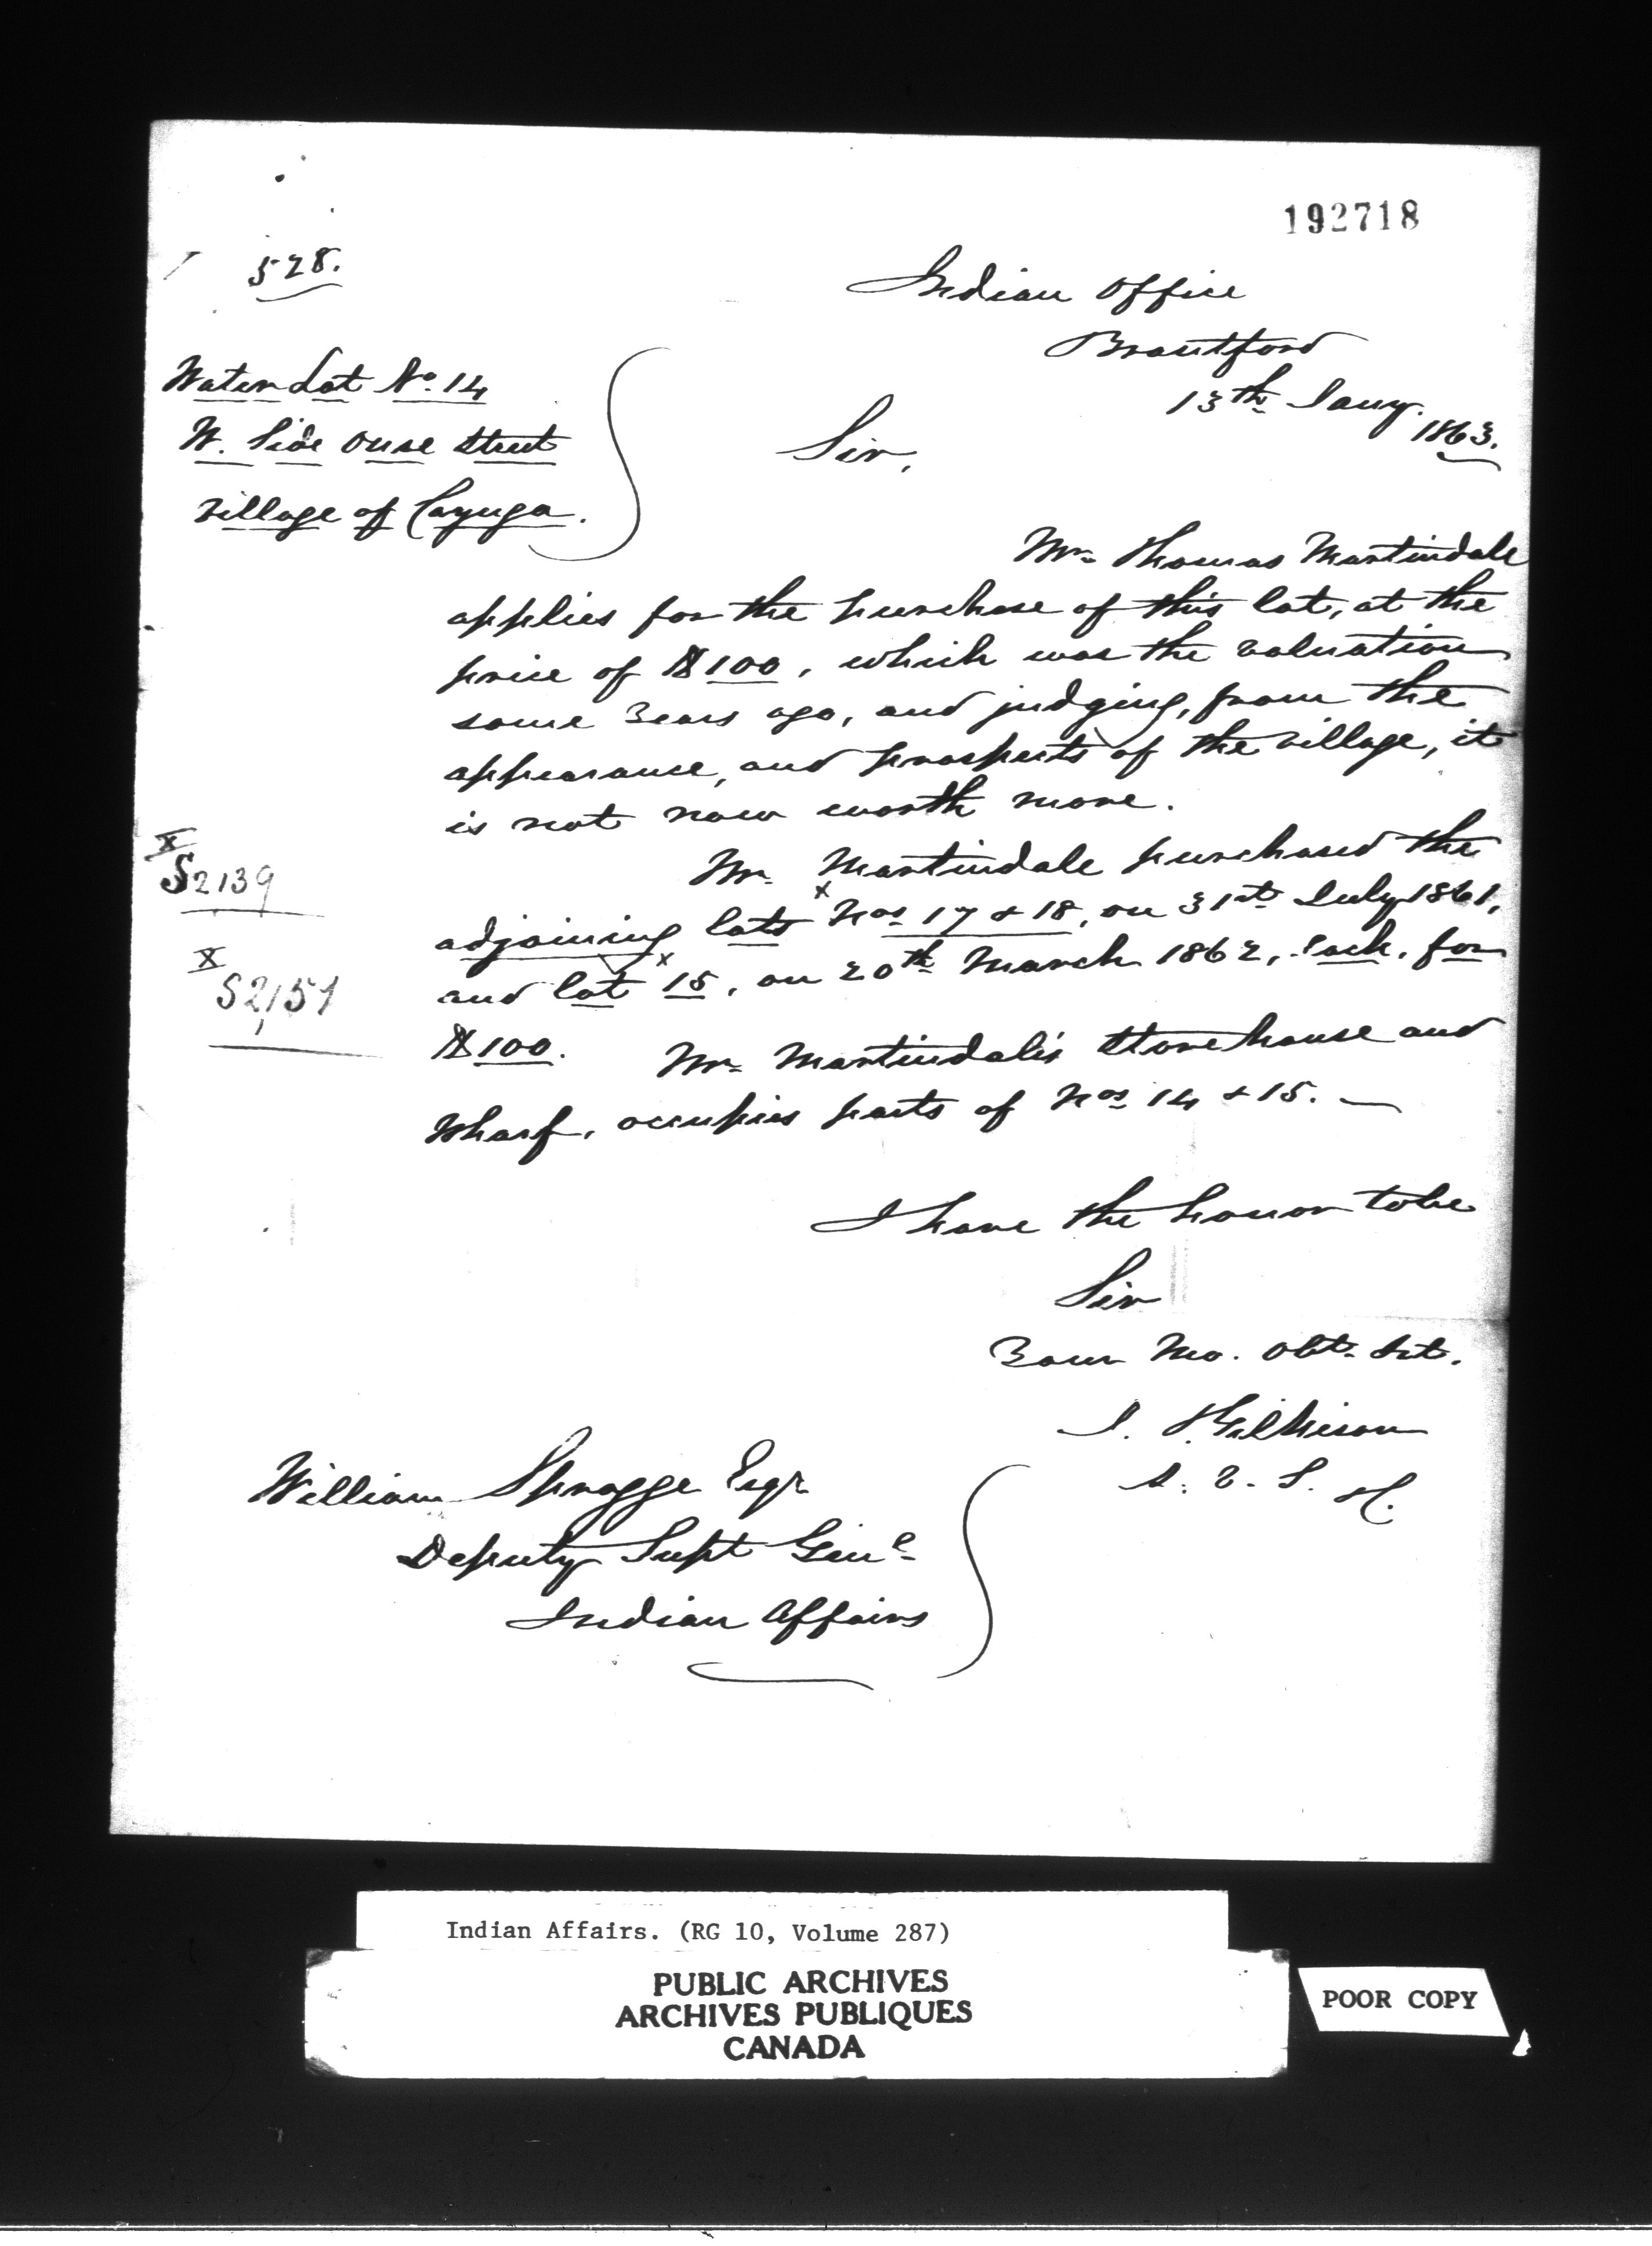 192718
528.
Indian Office
Brantford
13th Jany. 1863.
Water Lot No. 14
W. Side Ouse Street
Village of Cayuga.
Sir,
Mr. Thomas Martindale
applies for the purchase of this lot, at the
price of $100, which was the valuation
some years ago, and judging, from the
appearance, and prospects of the village, it
is not now worth more.
Mr. Martindale purchased the
X
S2139
adjoining lots x Nos 17 & 18, on 31st July 1861,
X
S2151
and lot x 15, on 20th March 1862, each, for
$100. Mr. Martindale's Storehouse and
Wharf, occupies parts of Nos 14 & 15. —
I have the honor to be
Sir
Your Mo. Obt. Svt.
J. Gilkison
William Spragge Esqr
Deputy Supt Genl
Indian Affairs
Indian Affairs. (RG 10, Volume 287)
PUBLIC ARCHIVES
ARCHIVES PUBLIQUES
CANADA
POOR COPY